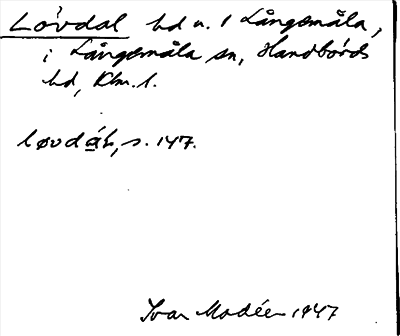 Lövdal hd u. 1 Långemåla,
i Långemåla sn, Handbörds
hd, Klm. l.
løvdáḷ, s. 147.
Ivar Modéer 1947